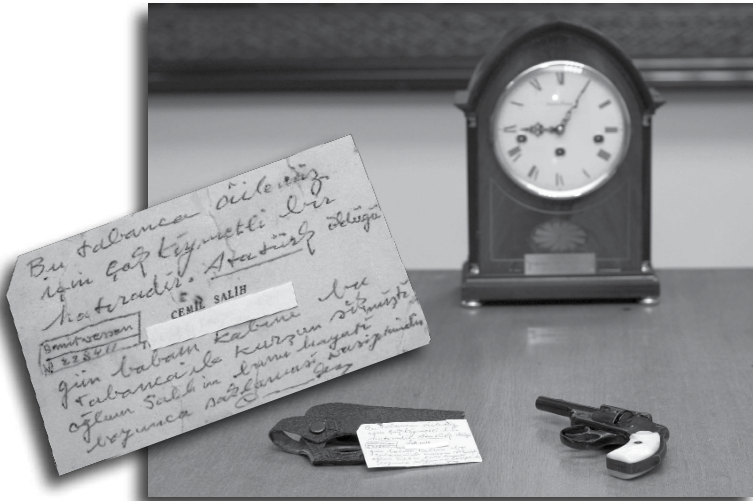 Bu tabanca ailemiz
için çok kıymetli bir
hatıradır. Atatürk öldüğü
CEMİL SALİH
Smitwesson
No
gün babam kalbine bu
tabanca ile kurşun sıkmıştı
oğlum Salih'in bunu hayatı
boyunca saklaması vasiyetimdir